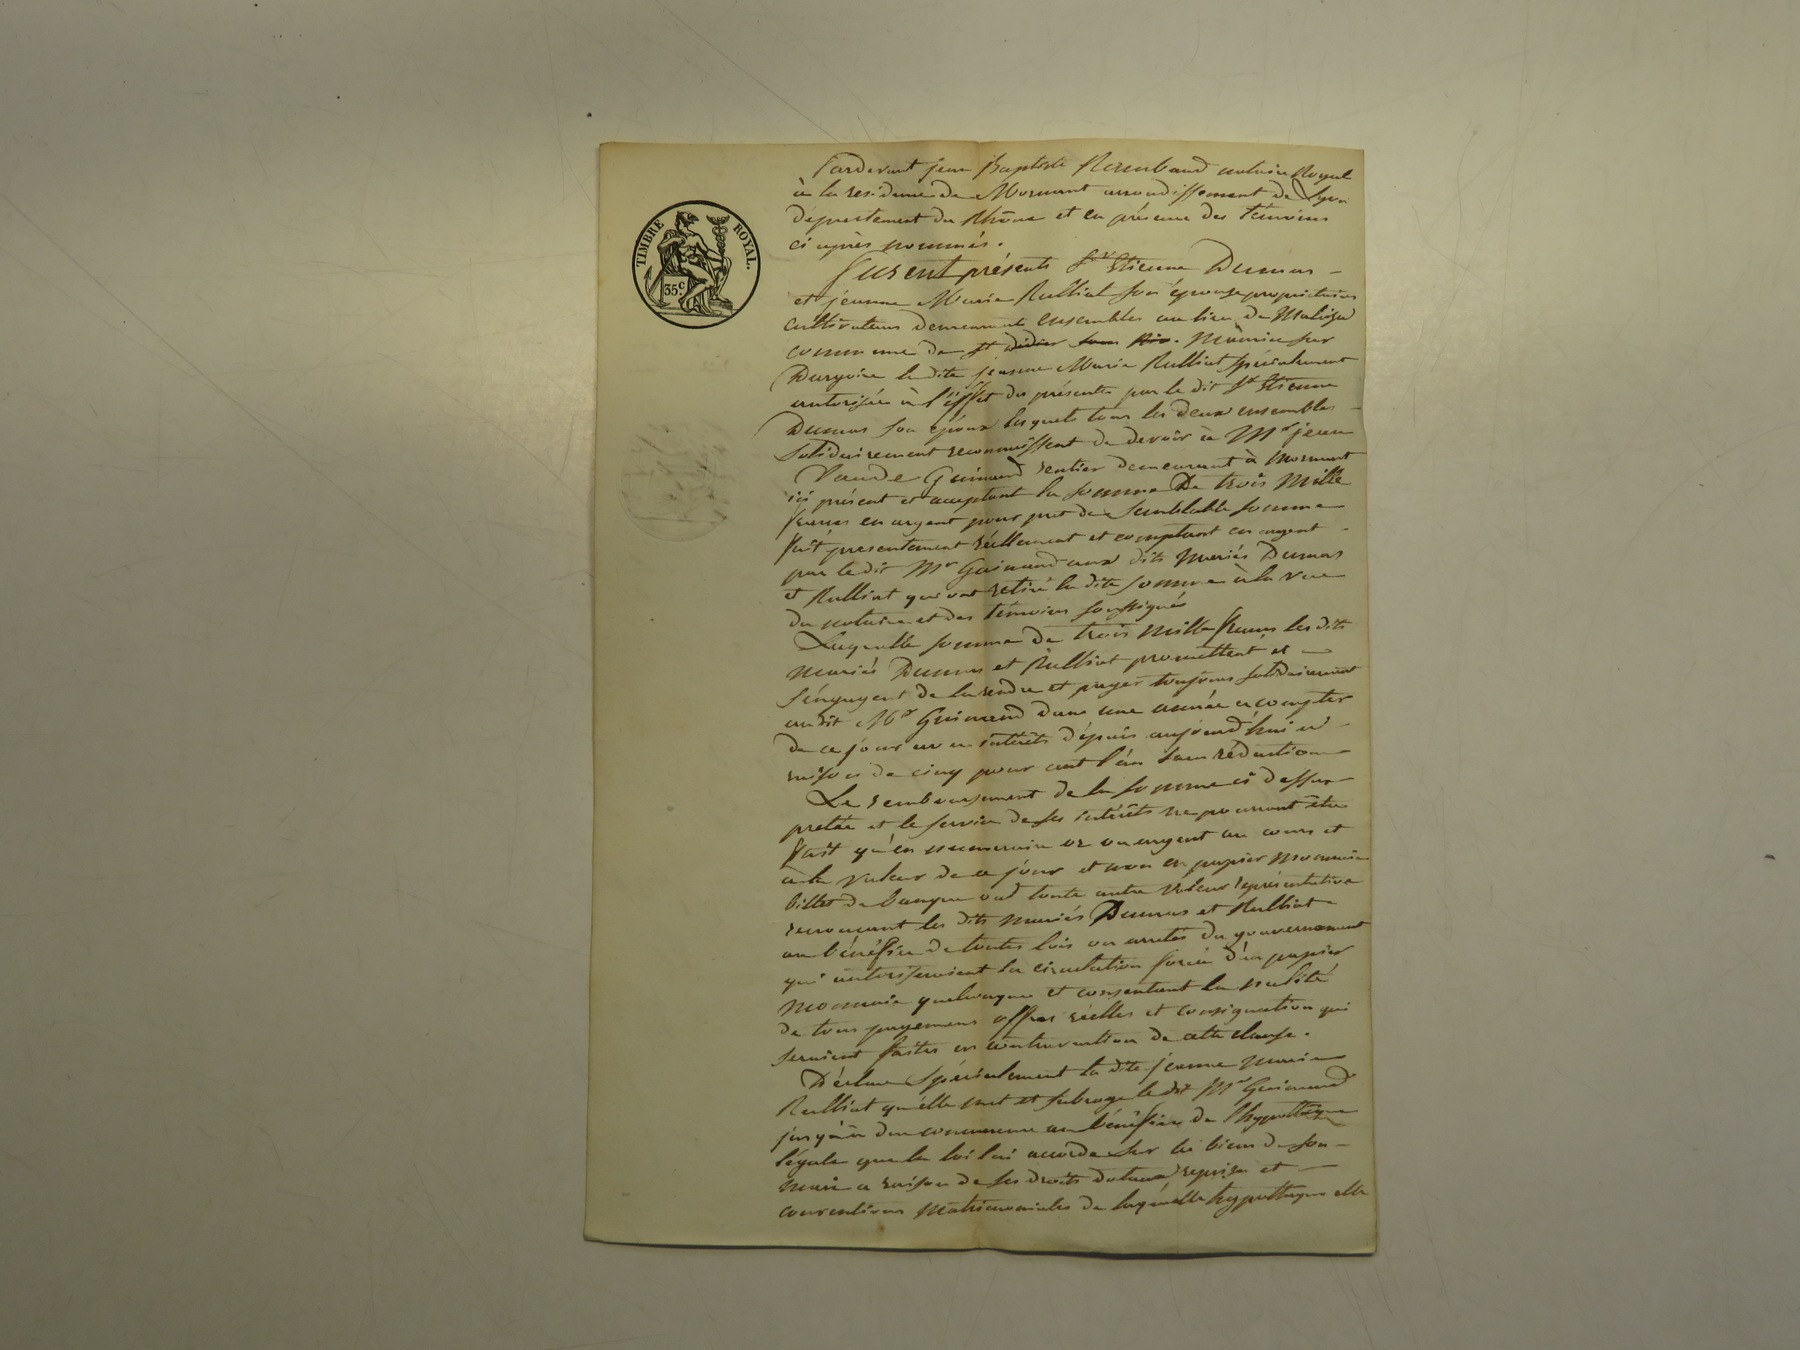 TIMBRE ROYAL.
35 c.
Pardevant jean Baptiste Rambaud notaire Royal
à la residence de Mornant arrondissement de Lyon
département du Rhône et en présence des témoins
ci après nommés.
Furent présents Sr Etienne Dumas
et jeanne Marie Rulliat son épouse propriétaires
cultivateurs demeurants ensembles au lieu de
commune de st didier sous Riv. sur
la dite jeanne Marie Rulliat spécialement
autorisée à l'éffet des présentes par le dit Sr Etienne
Dumas son époux lesquels tous les deux ensembles
solidairement reconnaissent de devoir à Mr jean
Guinand rentier demeurant à Mornant
ici présent et acceptant la somme De trois Mille
francs en argent pour pret de semblable somme
fait présentement réellement et comptant en argent
par le dit Mr Guinand aux dits mariés Dumas
et Rulliat qui ont retiré la dite somme à la vue
du notaire et des témoins soussignés
Laquelle somme de trois mille francs les dits
mariés Dumas et Rulliat promettent et
s'engagent de la rendre et payer toujours solidairement
au dit Mr Guinand dans une année a compter
de ce jour avec intérêts dépuis aujourd'hui a
raison de cinq pour cent l'an sans réduction
Le remboursement de la somme ci dessus
pretée et le service de ses intérêts ne pourront être
fait qu'en numeraire or ou argent au cours et
à la valeur de ce jour et non en papier monnaie
billet de banque oud toute autre valeur représentative
renonçant les dits mariés Dumas et Rulliat
au bénéfice de toutes lois ou arretés du gouvernement
qui autoriseraient la circulation forcée d'un papier
monnaie quelconque et consentant la nullité
de tous payemens offres réelles et consignation qui
seraient faites en contravention de cette clause.
Déclare spécialement la dite jeanne marie
Rulliat qu'elle met et subroge le dit Mr Guinand
jusqu'à due concurrence au bénéfice de l'hypothèque
légale que la loi lui accorde sur les biens de son
mari a raison de ses droits dotaux reprises et
conventions matrimoniales de laquelle hypothèque elle